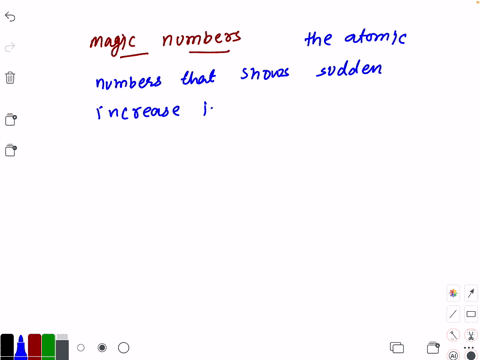 magic numbers the atomic
numbers that shows sudden
increase i
AI